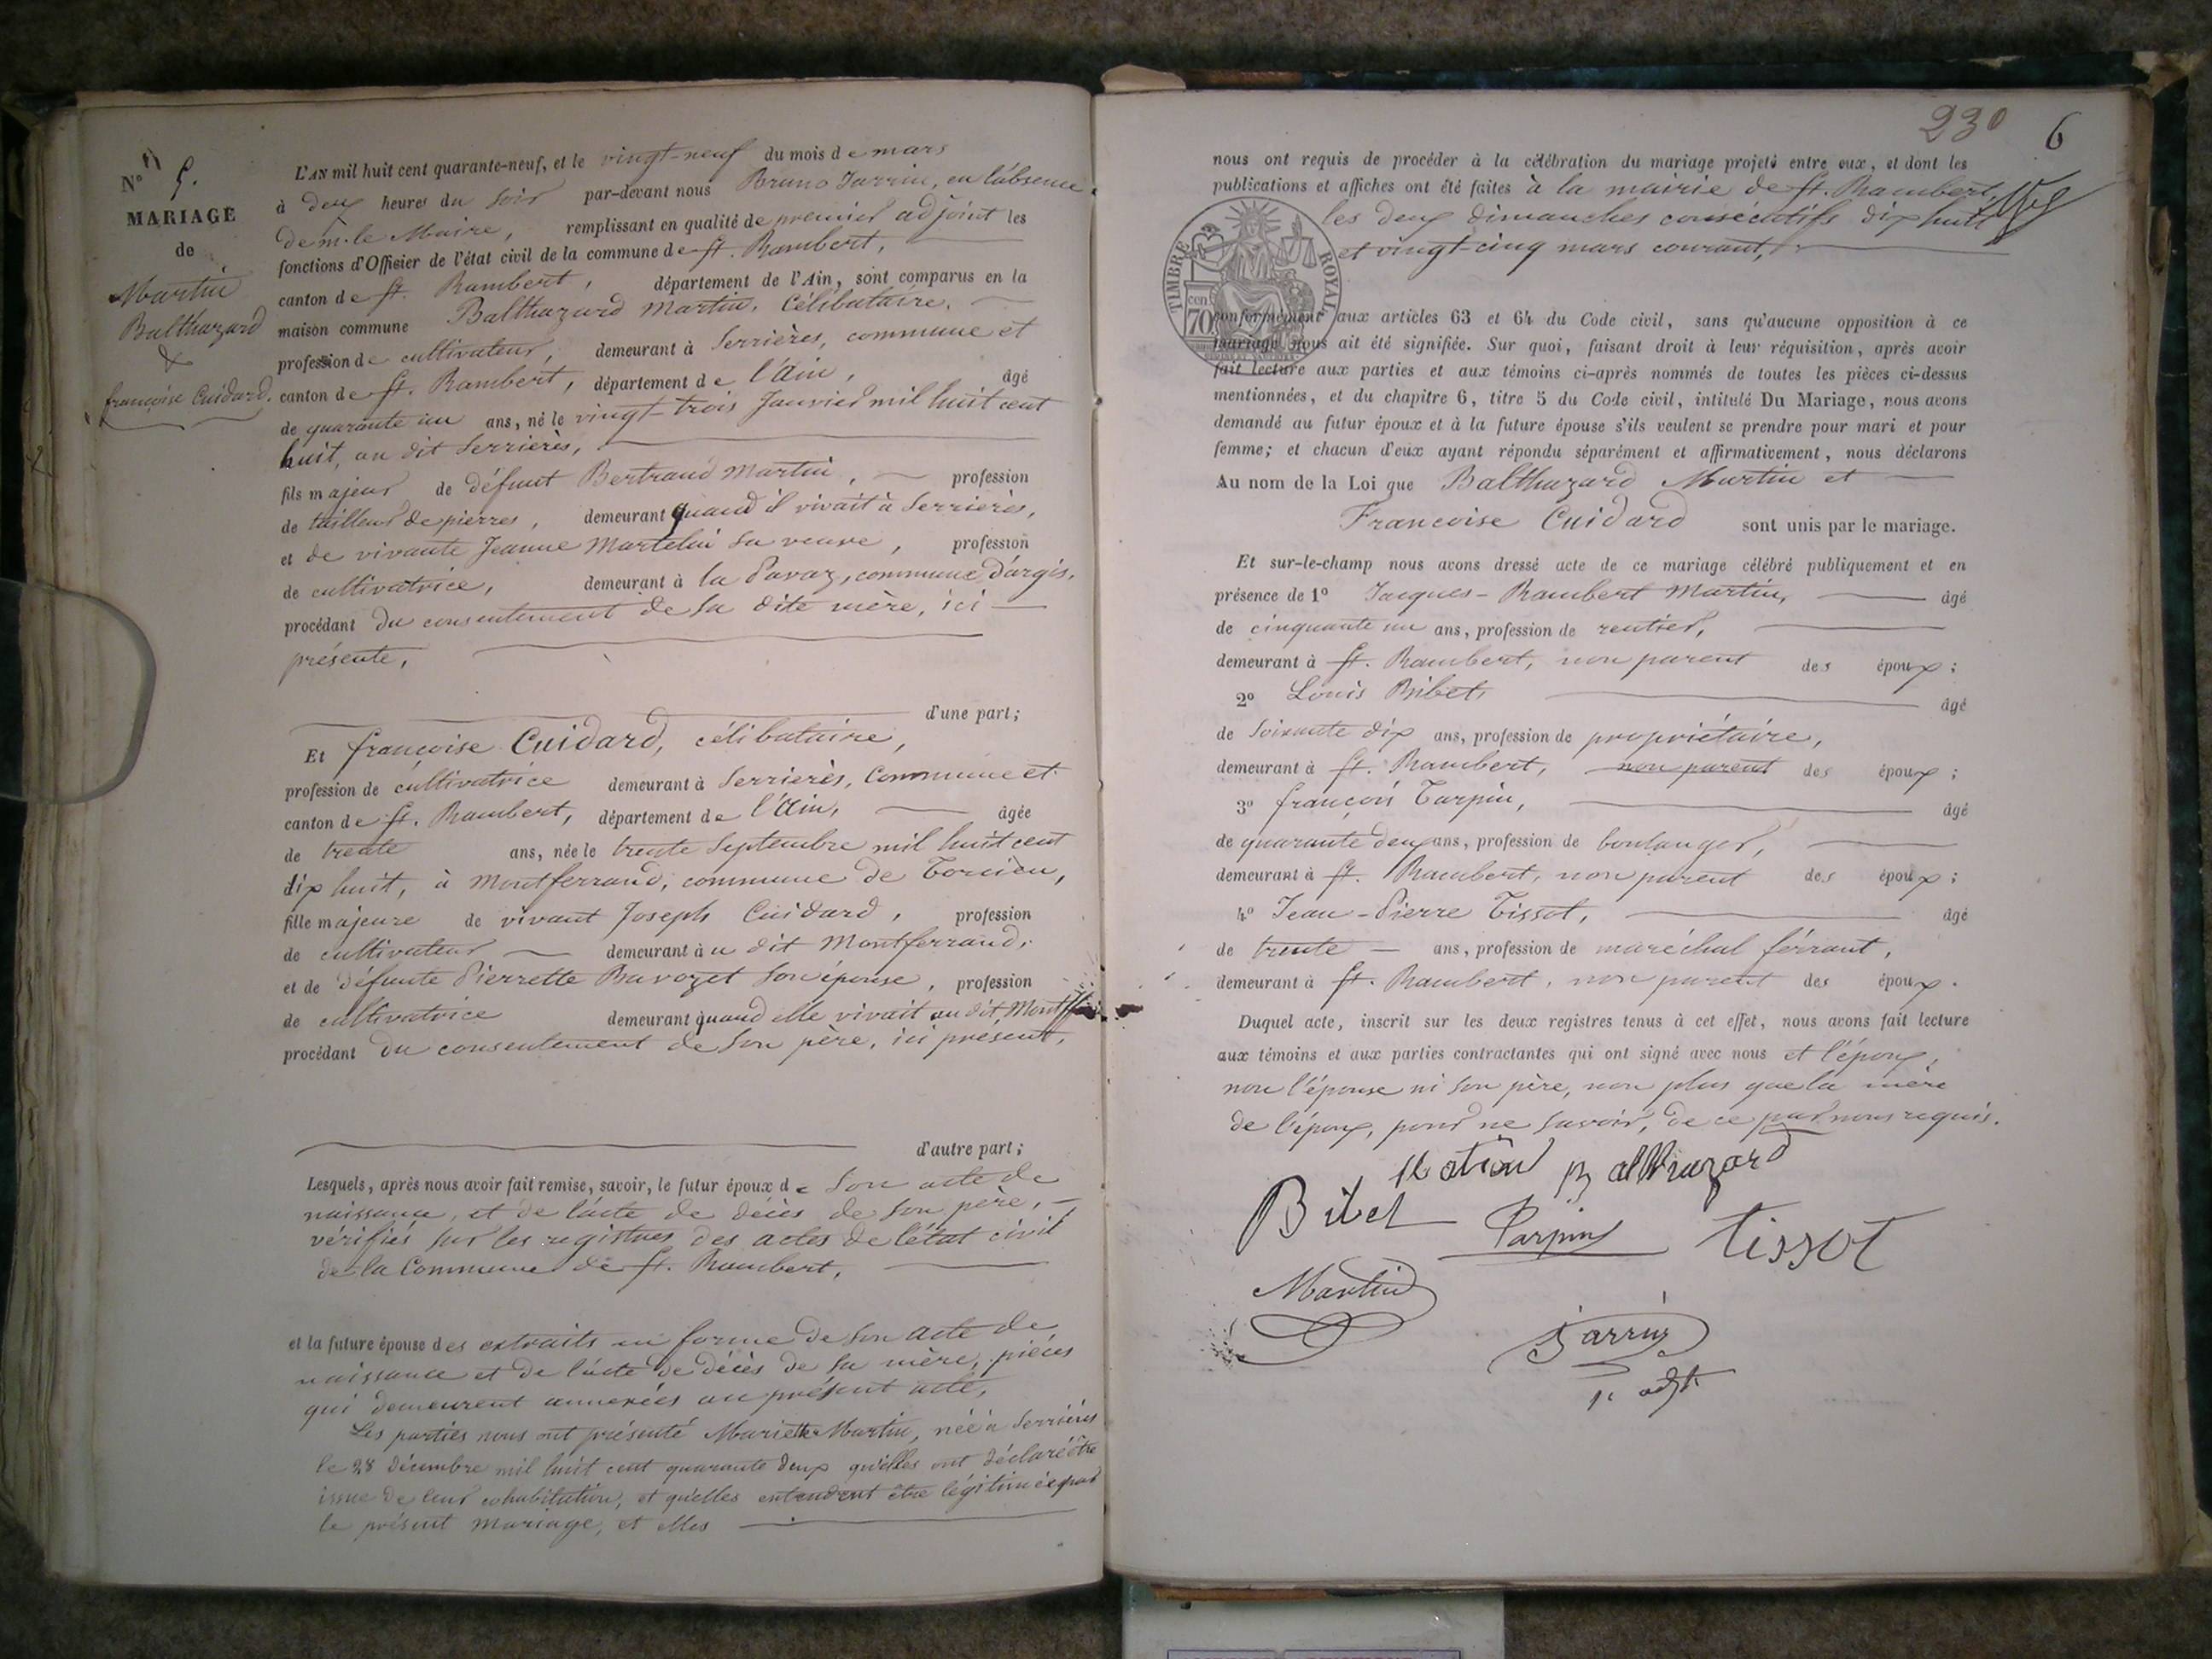 N° 5.
MARIAGE
de
Martin
Balthazard
&
françoise Cuidard.
L'AN mil huit cent quarante-neuf, et le vingt-neuf du mois de mars
à deux heures du soir par-devant nous Bruno Jarrin, en l'absence
de m. le Maire, remplissant en qualité de premier adjoint les
fonctions d'Officier de l'état civil de la commune de St. Rambert,
canton de St. Rambert, département de l'Ain, sont comparus en la
maison commune Balthazard Martin, Célibataire,
profession de cultivateur, demeurant à Serrières, commune et
canton de St. Rambert, département de l'Ain, âgé
de quarante un ans, né le vingt-trois Janvier mil huit cent
huit, au dit Serrières,
fils majeur de défunt Bertrand Martin, profession
de tailleur de pierres, demeurant quand il vivait à Serrières,
et de vivante Jeanne Martelin sa veuve, profession
de cultivatrice, demeurant à la Pavaz, commune d'argis,
procédant du consentement de sa dite mère, ici
présente,
d'une part;
Et françoise Cuidard, célibataire,
profession de cultivatrice demeurant à Serrières, Commune et
canton de St. Rambert, département de l'Ain, âgée
de trente ans, née le trente Septembre mil huit cent
dix huit, à Montferrand, commune de Torcieu,
fille majeure de vivant Joseph Cuidard, profession
de cultivateur demeurant au dit Montferrand,
et de défunte Pierrette Bavozet son épouse, profession
de cultivatrice demeurant quand elle vivait au dit
procédant du consentement de son père, ici présent,
d'autre part;
Lesquels, après nous avoir fait remise, savoir, le futur époux de son acte de
naissance, et de l'acte de décès de son père,
vérifiés sur les registres des actes de l'état civil
de la Commune de St. Rambert,
et la future épouse des extraits en forme de son acte de
naissance et de l'acte de décès de sa mère, pièces
qui demeurent annexées au présent acte,
Les parties nous ont présenté Mariette Martin, née à Serrières
le 28 décembre mil huit cent quarante deux qu'elles ont déclaré être
issue de leur cohabitation, et qu'elles entendent être légitimée par
le présent mariage, et elles
230 6
nous ont requis de procéder à la célébration du mariage projeté entre eux, et dont les
publications et affiches ont été faites à la mairie de St. Rambert,
les deux dimanches consécutifs dix huit
et vingt-cinq mars courant,
TIMBRE ROYAL
70 cen
conformément aux articles 63 et 64 du Code civil, sans qu'aucune opposition à ce
mariage nous ait été signifiée. Sur quoi, faisant droit à leur réquisition, après avoir
fait lecture aux parties et aux témoins ci-après nommés de toutes les pièces ci-dessus
mentionnées, et du chapitre 6, titre 5 du Code civil, intitulé Du Mariage, nous avons
demandé au futur époux et à la future épouse s'ils veulent se prendre pour mari et pour
femme; et chacun d'eux ayant répondu séparément et affirmativement, nous déclarons
Au nom de la Loi que Balthazard Martin et
Francoise Cuidard sont unis par le mariage.
Et sur-le-champ nous avons dressé acte de ce mariage célébré publiquement et en
présence de 1° Jacques-Rambert Martin, âgé
de cinquante un ans, profession de rentier,
demeurant à St. Rambert, non parent des époux;
2° Louis Bibet, âgé
de soixante dix ans, profession de propriétaire,
demeurant à St. Rambert, non parent des époux;
3° françois Tarpin, âgé
de quarante deux ans, profession de boulanger,
demeurant à St. Rambert, non parent des époux;
4° Jean-Pierre Tissot, âgé
de trente ans, profession de maréchal férrant,
demeurant à St. Rambert, non parent des époux.
Duquel acte, inscrit sur les deux registres tenus à cet effet, nous avons fait lecture
aux témoins et aux parties contractantes qui ont signé avec nous et l'époux,
non l'épouse ni son père, non plus que la mère
de l'époux, pour ne savoir, de ce par nous requis.
Balthazard
Bibet Tarpin Tissot
Martin
Jarrin
1er adjt